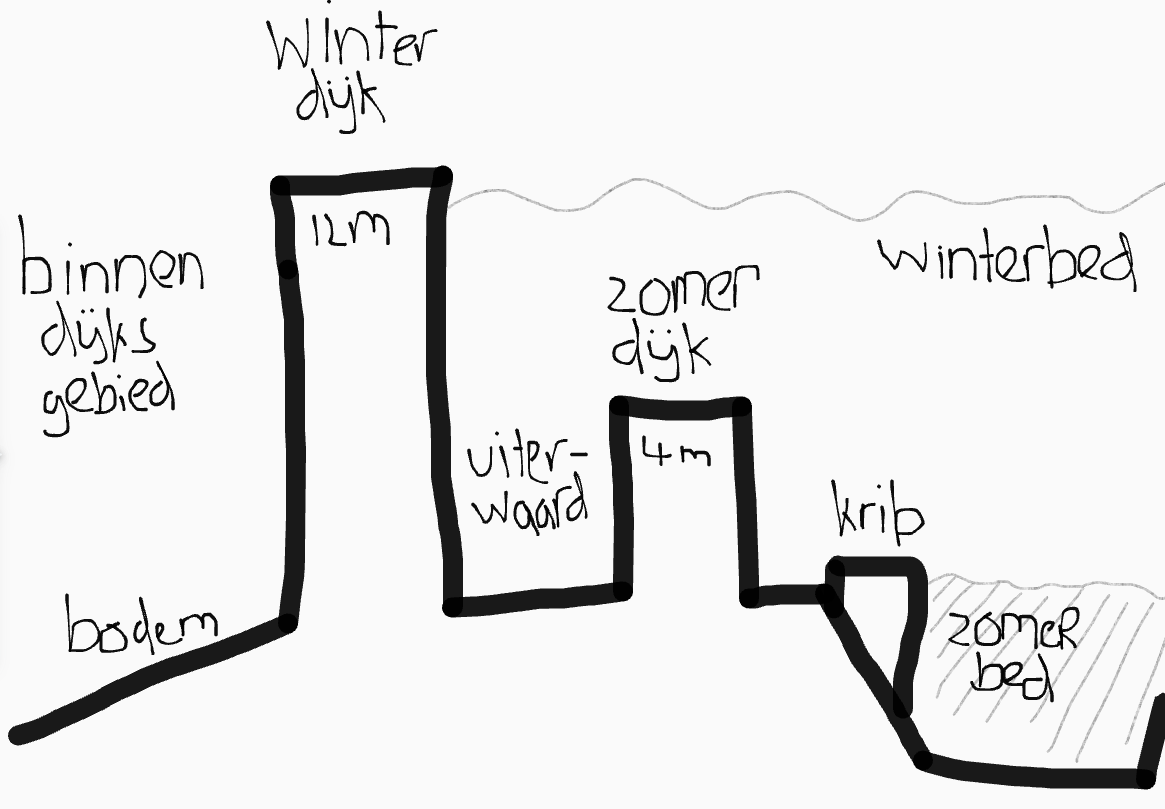 winter
dijk
12m
binnen
dijks
gebied
winterbed
zomer
dijk
4m
uiter-
waard
krib
bodem
zomer
bed